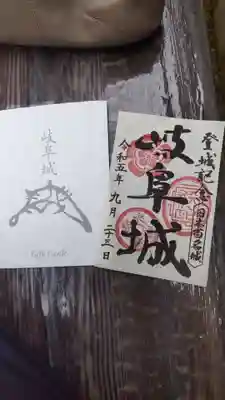 岐阜城
Gifu Castle
登城記念
日本百名城
岐阜城
令和五年 九月 二十三日